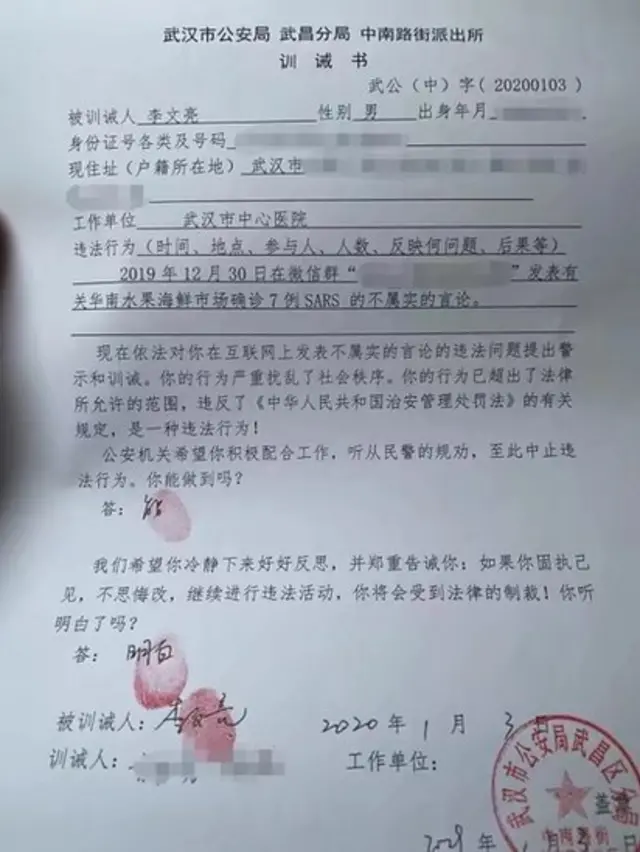 武汉市公安局 武昌分局 中南路街派出所
训 诫 书
武公（中）字（20200103）
被训诫人 李文亮 性别 男 出身年月
身份证号各类及号码
现住址（户籍所在地） 武汉市
工作单位 武汉市中心医院
违法行为（时间、地点、参与人、人数、反映何问题、后果等）
2019年12月30日在微信群“ ”发表有
关华南水果海鲜市场确诊7例SARS的不属实的言论。
现在依法对你在互联网上发表不属实的言论的违法问题提出警
示和训诫。你的行为严重扰乱了社会秩序。你的行为已超出了法律
所允许的范围，违反了《中华人民共和国治安管理处罚法》的有关
规定，是一种违法行为！
公安机关希望你积极配合工作，听从民警的规劝，至此中止违
法行为。你能做到吗？
答：能
我们希望你冷静下来好好反思，并郑重告诫你：如果你固执己
见，不思悔改，继续进行违法活动，你将会受到法律的制裁！你听
明白了吗？
答：明白
被训诫人：李文亮 2020年1月3日
训诫人： 工作单位：
武汉市公安局武昌区分局
中南路街